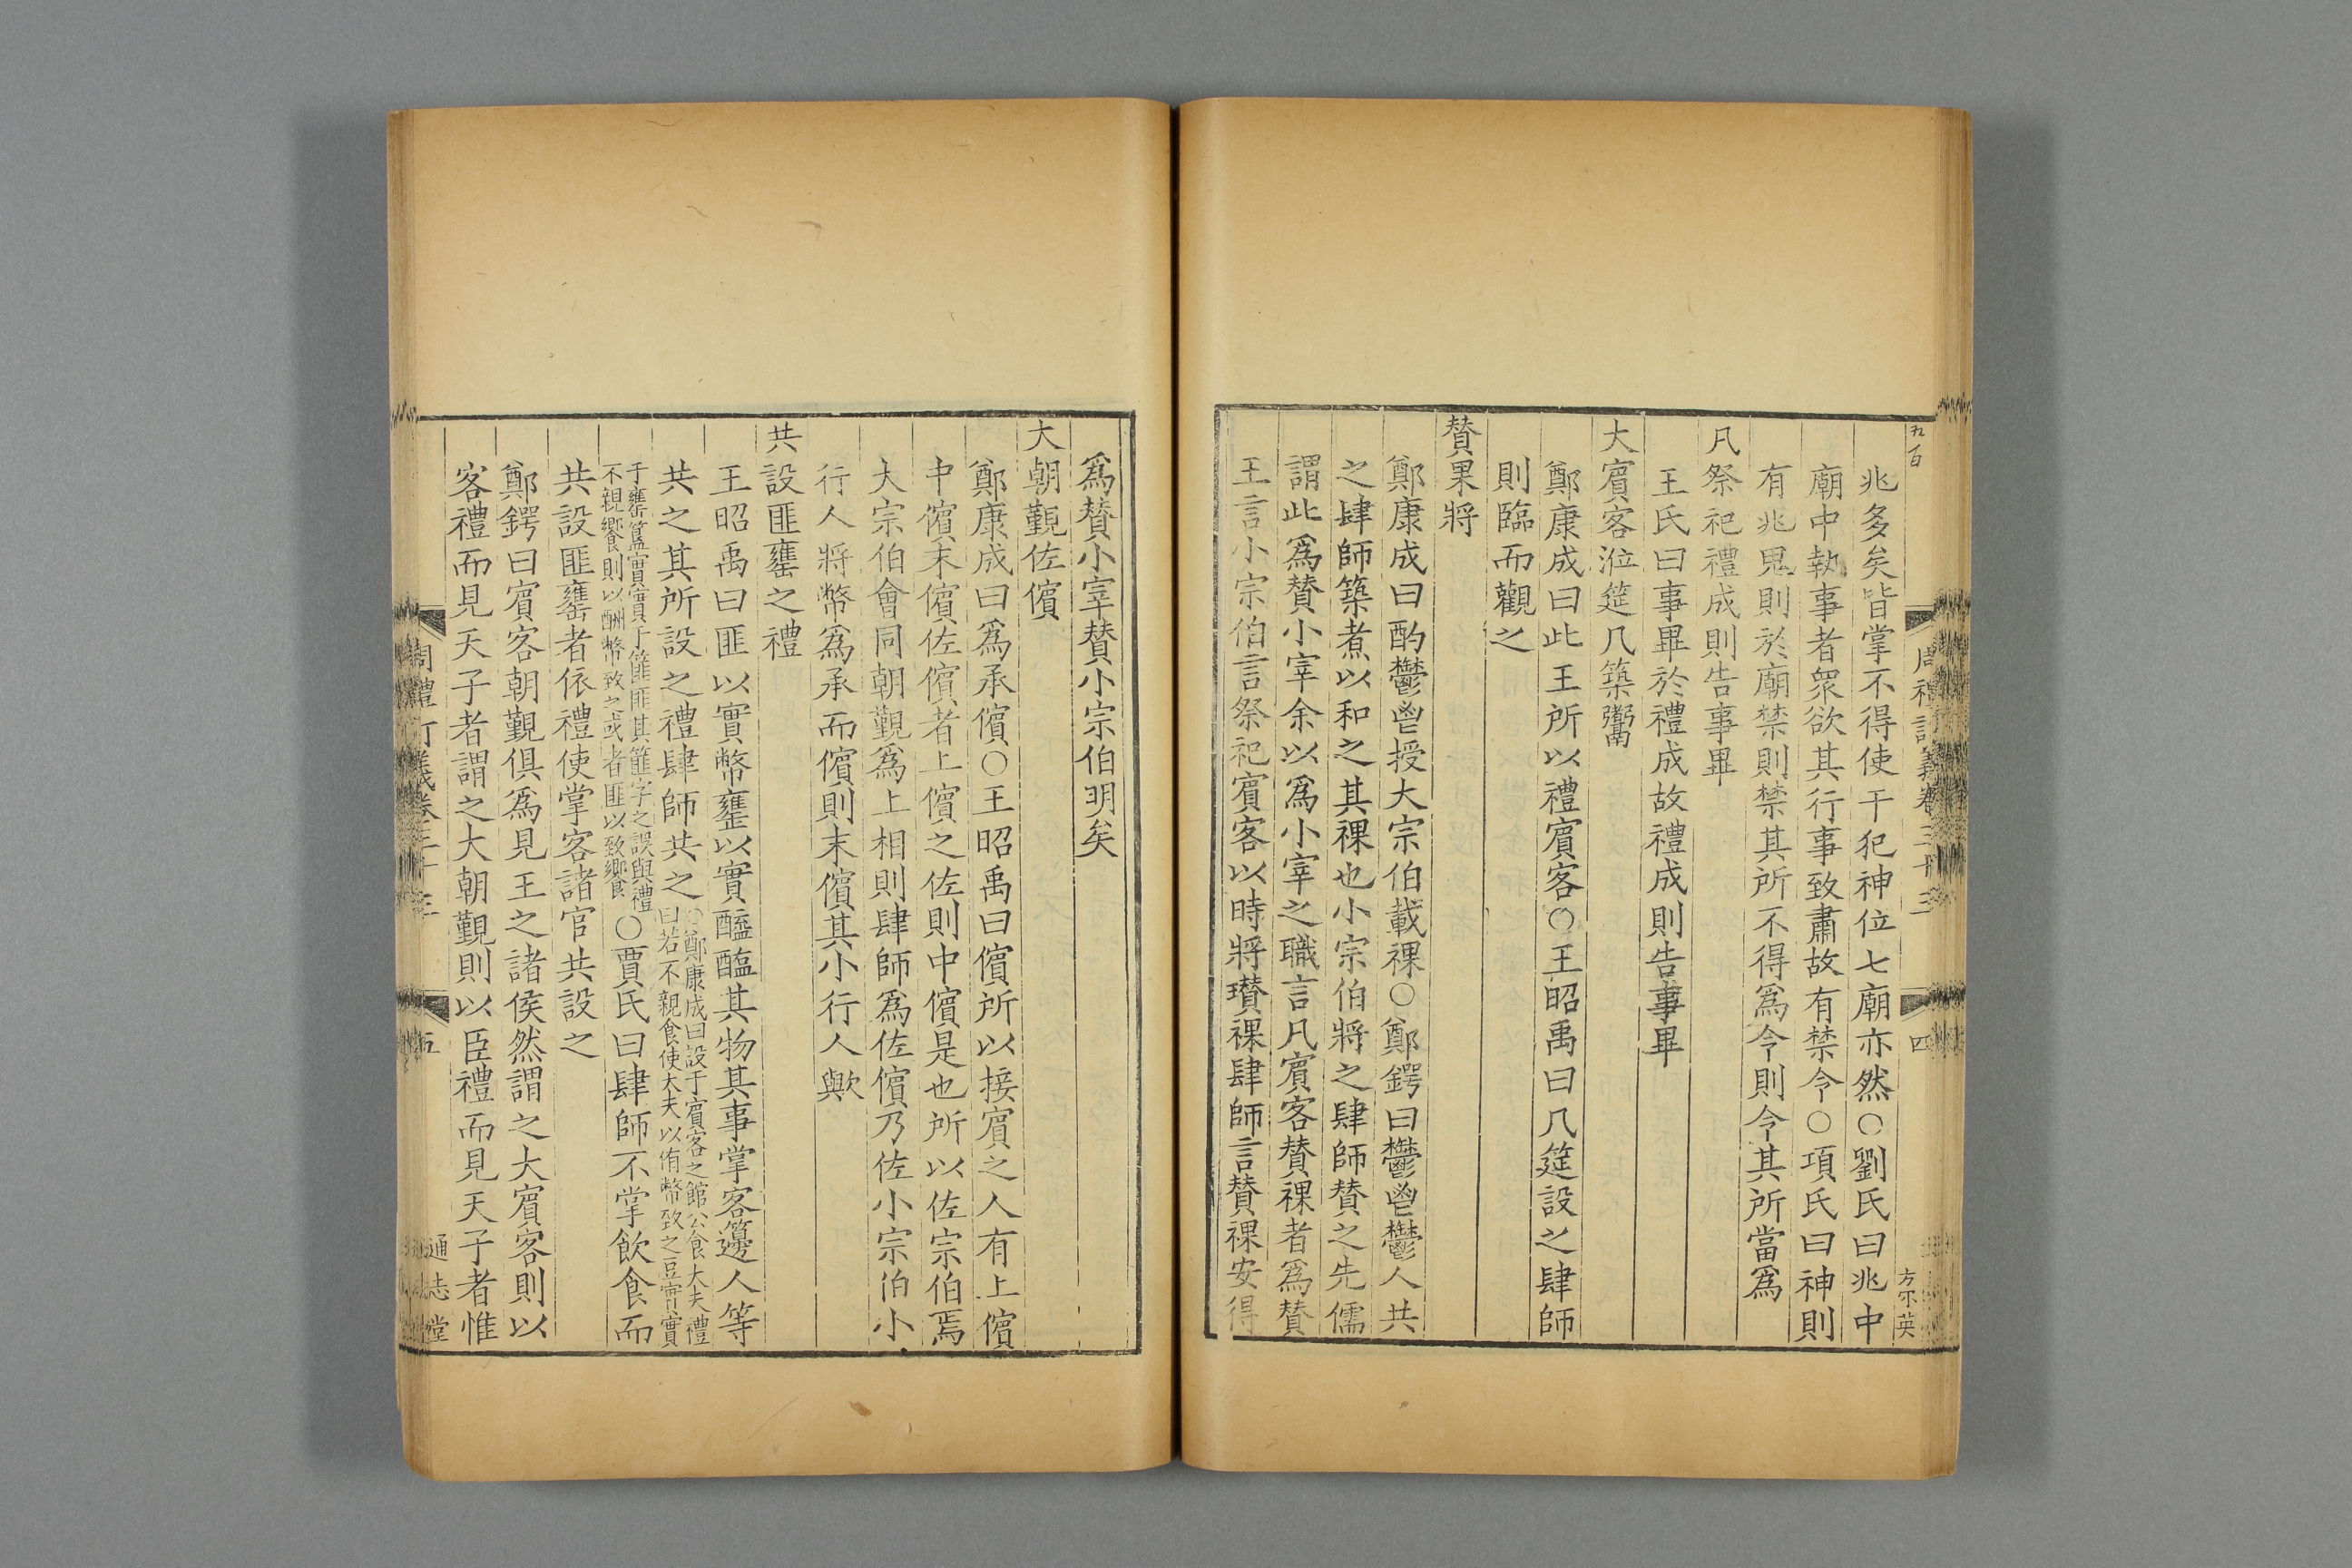 兆多矣皆掌不得使干犯神位七廟亦然○劉氏曰兆中
廟中執事者衆欲其行事致肅故有禁令○項氏曰神則
有兆鬼則於廟禁則禁其所不得爲令則令其所當爲
凡祭祀禮成則告事畢
王氏曰事畢於禮成故禮成則告事畢
大賓客涖筵几築鬻
鄭康成曰此王所以禮賓客○王昭禹曰几筵設之肆師
則臨而觀之
賛果將
鄭康成曰酌鬱鬯授大宗伯載祼○鄭鍔曰鬱鬯鬱人共
之肆師築煮以和之其祼也小宗伯將之肆師賛之先儒
謂此爲賛小宰余以爲小宰之職言凡賓客賛祼者爲賛
王言小宗伯言祭祀賓客以時將瓚祼肆師言賛祼安得
周禮訂義卷三十三
四
爲賛小宰賛小宗伯明矣
大朝覲佐儐
鄭康成曰爲承儐○王昭禹曰儐所以接賓之人有上儐
中儐末儐佐儐者上儐之佐則中儐是也所以佐宗伯焉
大宗伯會同朝覲爲上相則肆師爲佐儐乃佐小宗伯小
行人將幣爲承而儐則末儐其小行人歟
共設匪罋之禮
王昭禹曰匪以實幣罋以實醯醢其物其事掌客籩人等
共之其所設之禮肆師共之○鄭康成曰設于賓客之館公食大夫禮
曰若不親食使大夫以侑幣致之豆實實
于罋簋實實于篚匪其篚字之誤與禮
不親饗則以酬幣致之或者匪以致饗○賈氏曰肆師不掌飲食而
共設匪罋者依禮使掌客諸官共設之
鄭鍔曰賓客朝覲俱爲見王之諸侯然謂之大賓客則以
客禮而見天子者謂之大朝覲則以臣禮而見天子者惟
周禮訂義卷三十三
五
通志堂